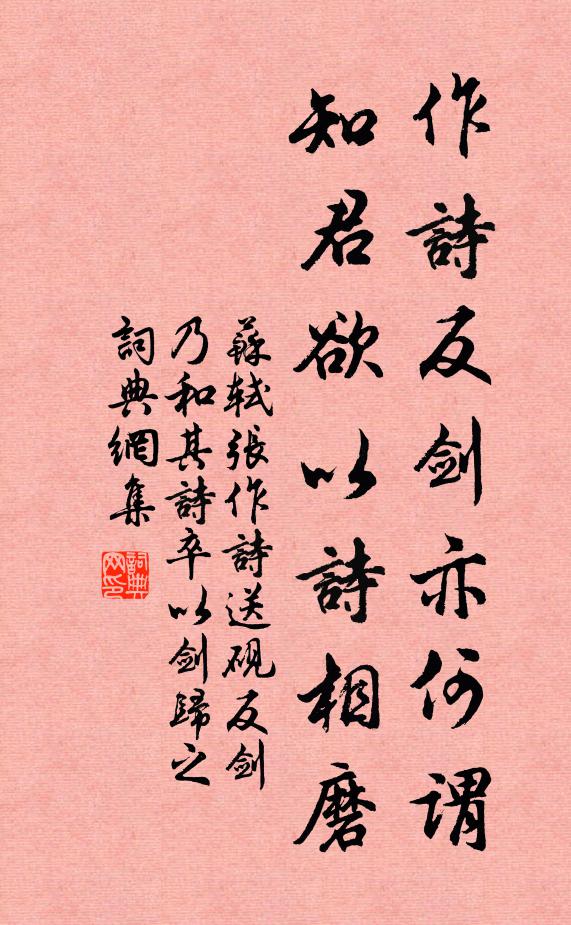 作詩反剑亦何谓
知君欲以詩相磨
蘇轼張作詩送砚反剑
乃和其詩卒以剑歸之
詞典網集
詞典网印